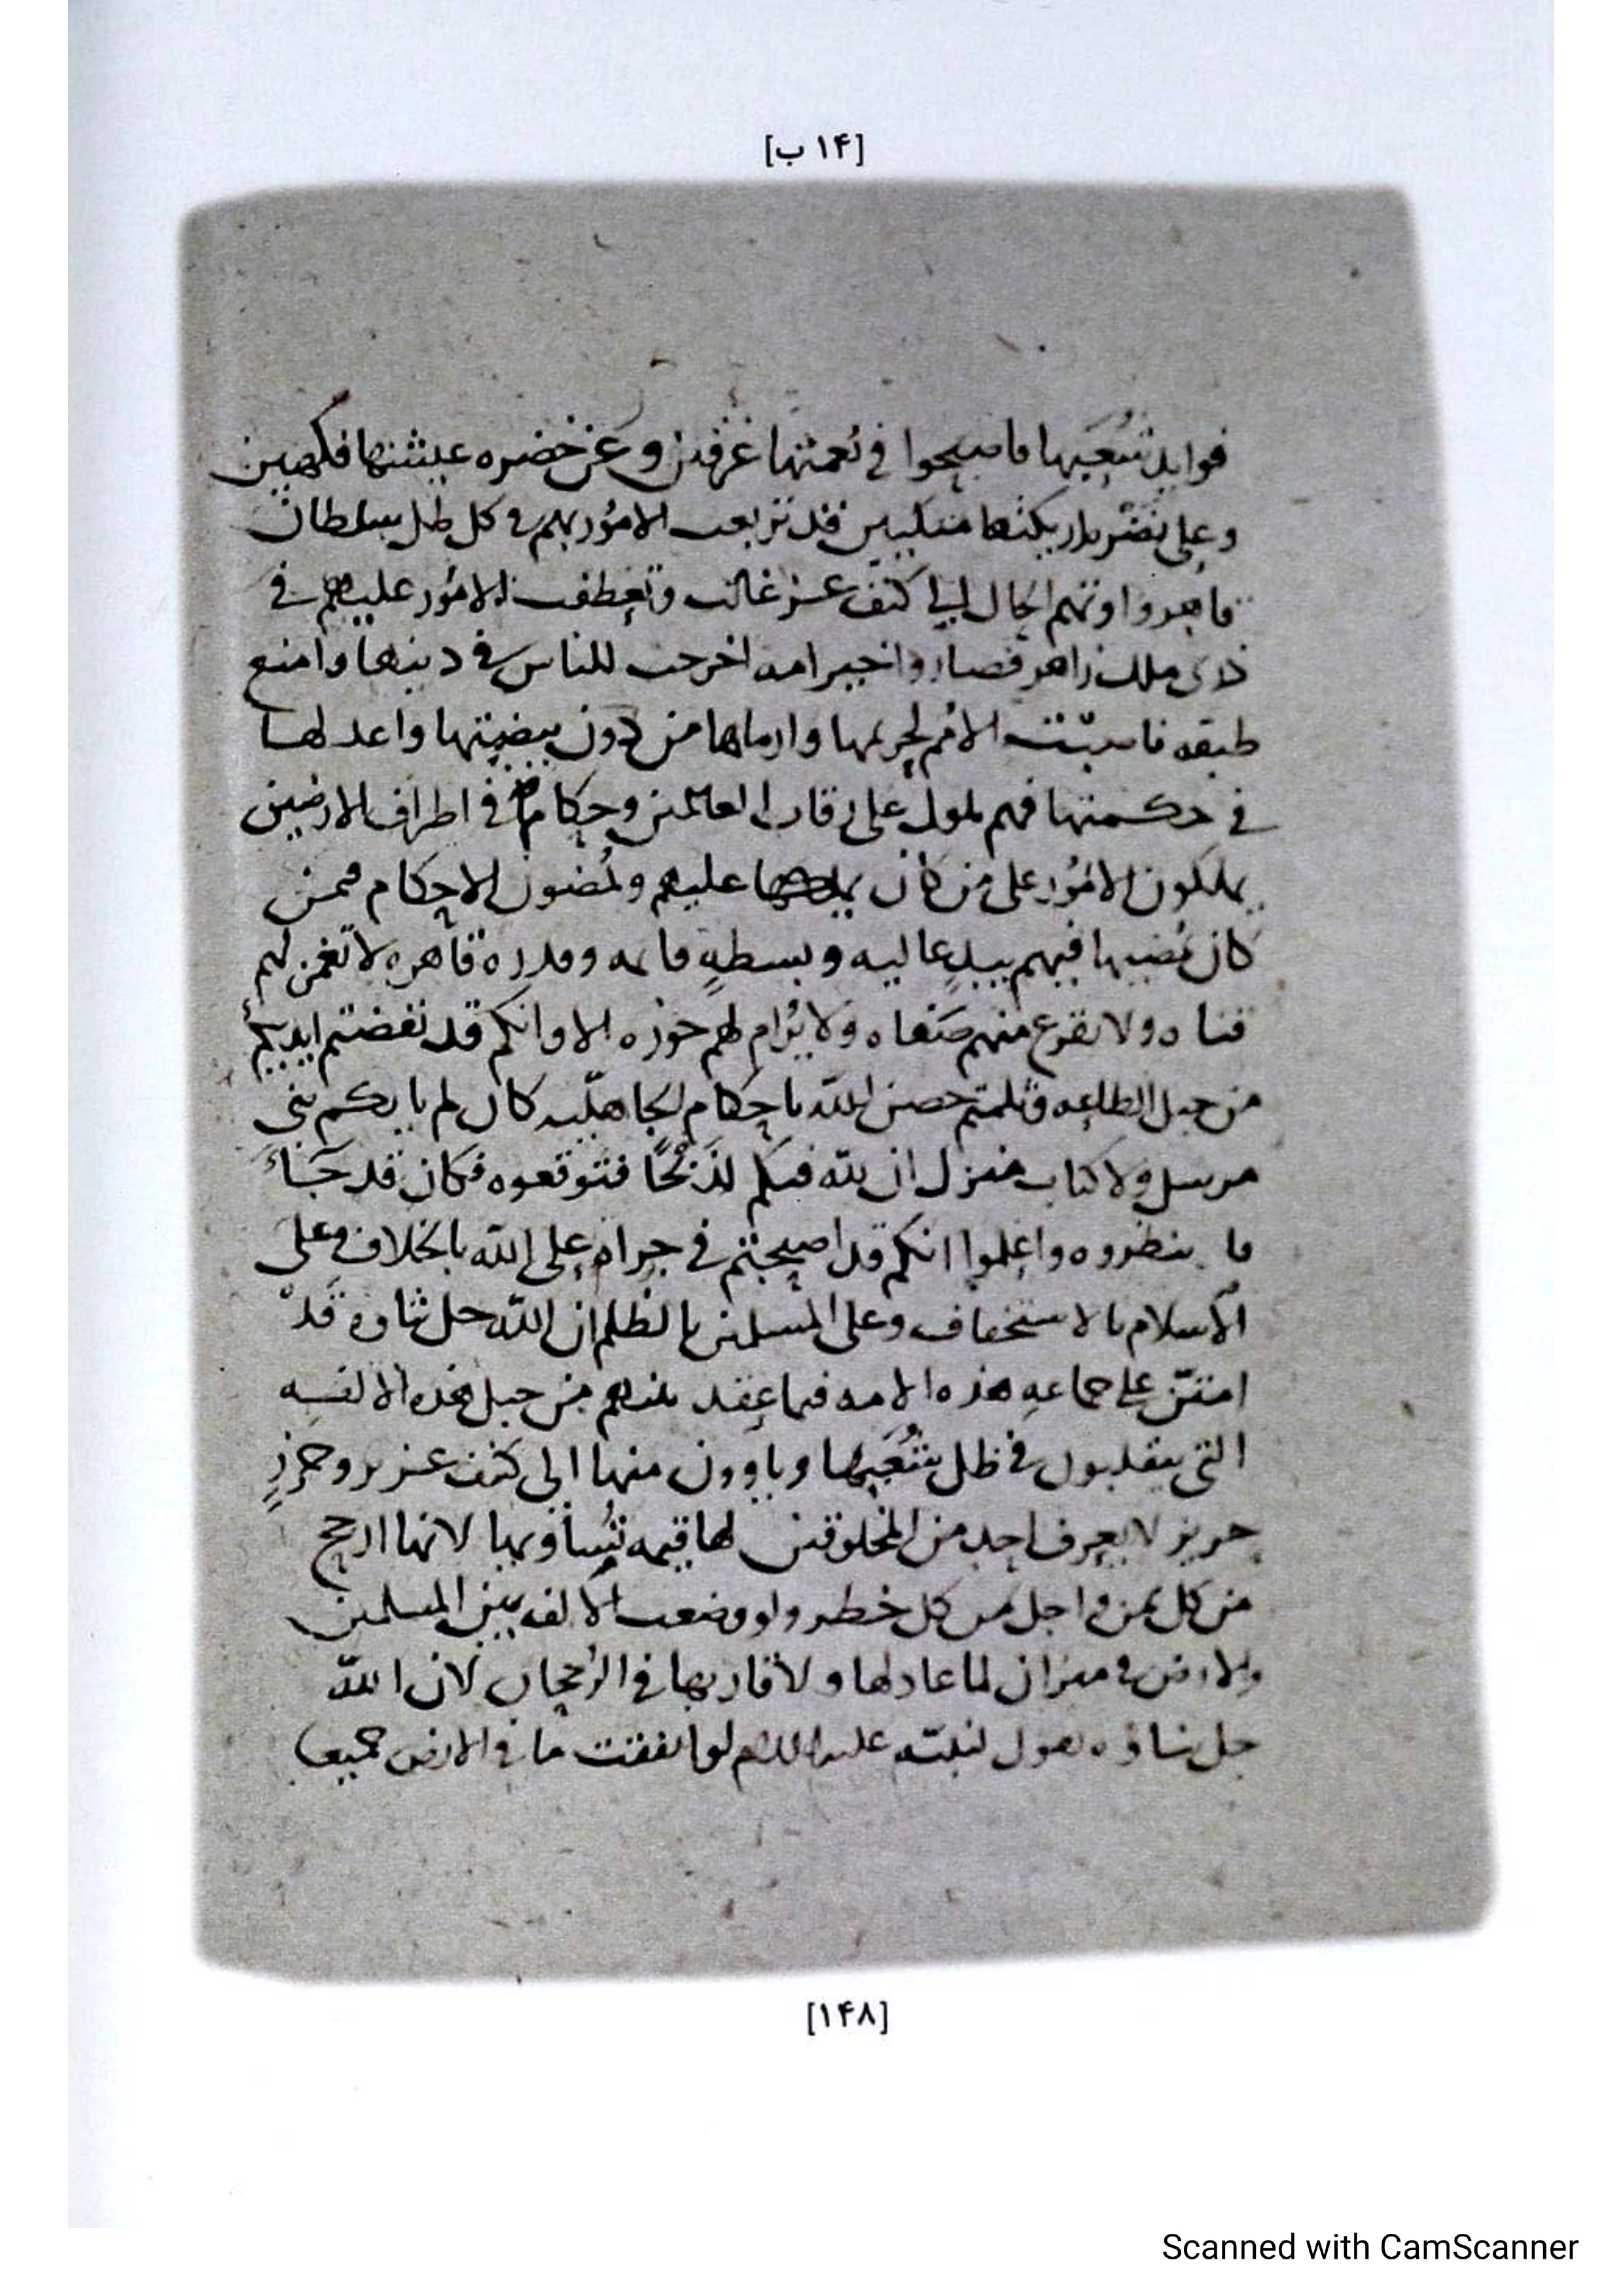 [۱۴ ب]
فوايد شعبها فاصبحوا في نعمتها غرقين وعن خضره عيشتها فكهين
وعلى اريكتها متكيين قد تربعت الامور بهم في كل ظل سلطان
قاهر واوتهم الحال الى كنف عز غالب وتعطفت الامور عليهم في
ذرى ملك زاهر فصاروا خير امه اخرجت للناس في دينها وامنع
طبقه الامم لحريمها وارماها من دون بيضتها واعدلها
في حكمتها فهم ملوك على رقاب العالمين وحكام في اطراف الارضين
يملكون الامور على من كان يملكها عليهم ويمضون الاحكام فمن
كان يمضيها فيهم بيد عاليه وبسطه وقدره قاهره لا تغمز لهم
قناه ولا تقرع منهم صفاه ولا يرام لهم حوزه الا وانكم قد نفضتم ايديكم
من حبل الطاعه وثلمتم حصن الله باحكام الجاهليه كان لم ياتكم نبي
مرسل ولا كتاب منزل ان لله فيكم لذبحا فتوقعوه فكان قد جاء
ما ينظروه واعلموا انكم قد اصبحتم في جراه على الله بالخلاف وعلى
الاسلام بالاستخفاف وعلى المسلمين بالظلم ان الله جل ثناوه قد
امتن على جماعه هذه الامه فيما عقد بينهم من حبل هذه الالفه
التي يتقلبون في ظل شعبها وياوون منها الى كنف عزيز وحرز
حريز لا يعرف احد من المخلوقين لها قيمه تساويها لانها ارجح
من كل ثمن واجل من كل خطر ولو وضعت الالفه بين المسلمين
والارض في ميزان لما عادلها ولا قاربها في الرجحان لان الله
جل ثناؤه يقول لنبيه عليه السلم لو انفقت ما في الارض جميعا
[۱۴۸]
Scanned with CamScanner